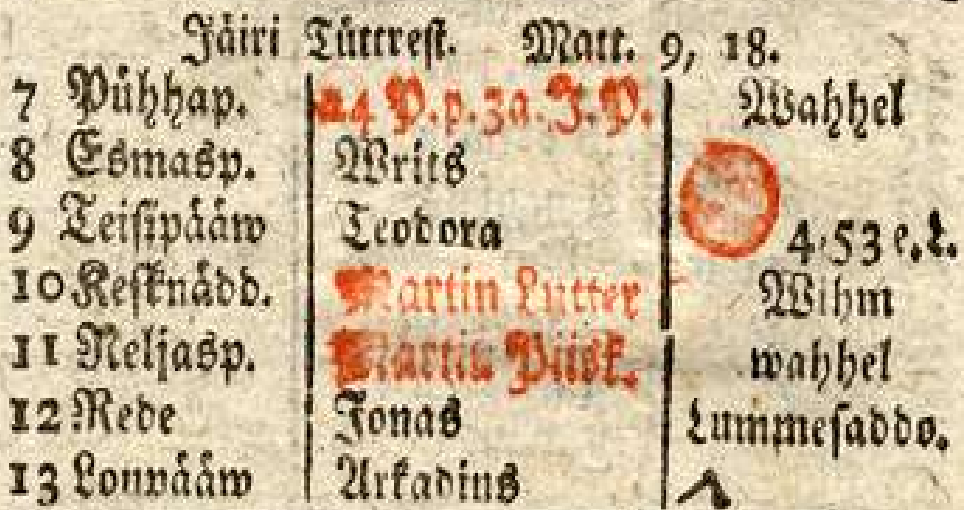 Jäiri Tüttrest. Matt. 9, 18.
7 Pühhap. 24 P. p. 3a. J. P. Wahhel
8 Esmasp. Writs
9 Teisipääw Teodora 4,53 e. L.
10 Kesknädd. Martin Lutter Wihm
11 Neljasp. Martin Piisk. wahhel
12 Rede Jonas Lummesaddo.
13 Loupääw Arkadius